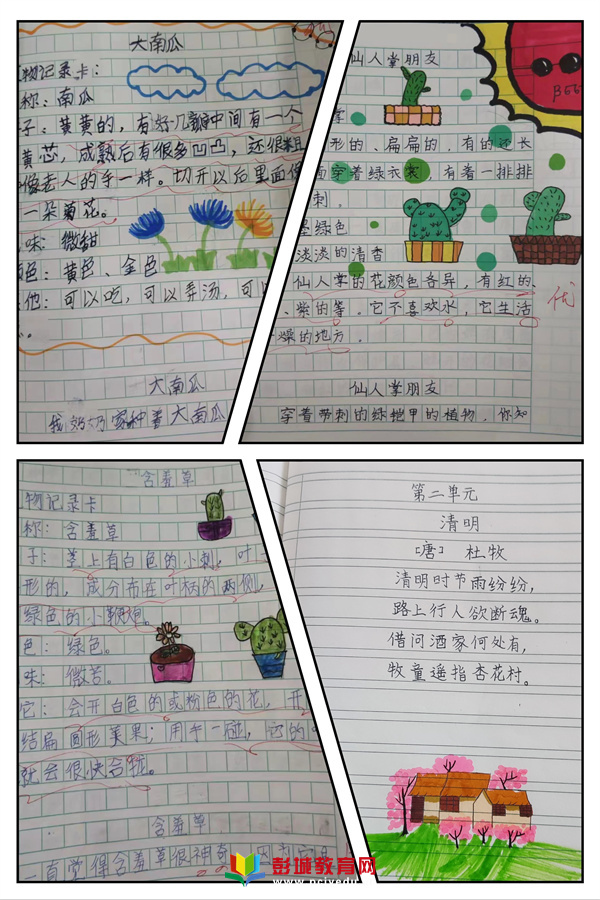 大南瓜
物记录卡：
称：南瓜
子：黄黄的，有好几瓣中间有一个
黄芯，成熟后有很多凹凸，还很粗
像老人的手一样。切开以后里面像
一朵菊花。
味：微甜
颜色：黄色、金色
他：可以吃，可以弄汤，可以
大南瓜
我奶奶家种着大南瓜
仙人掌朋友
掌
形的、扁扁的，有的还长
面穿着绿衣裳，有着一排排
刺。
绿色
淡淡的清香
仙人掌的花颜色各异，有红的、
、紫的等。它不喜欢水，它生活
燥的地方。
优
仙人掌朋友
穿着带刺的绿铠甲的植物，你知
含羞草
物记录卡
称：含羞草
子：茎上有白色的小刺，叶
形的，成分布在叶柄的两侧，
绿色的小鞭炮。
色：绿色。
味：微苦。
它：会开白色的或粉色的花，开
结扁圆形荚果；用手一碰，它的
就会很快合拢。
含羞草
一直觉得含羞草很神奇
第二单元
清明
［唐］ 杜牧
清明时节雨纷纷，
路上行人欲断魂。
借问酒家何处有，
牧童遥指杏花村。
彭城教育网